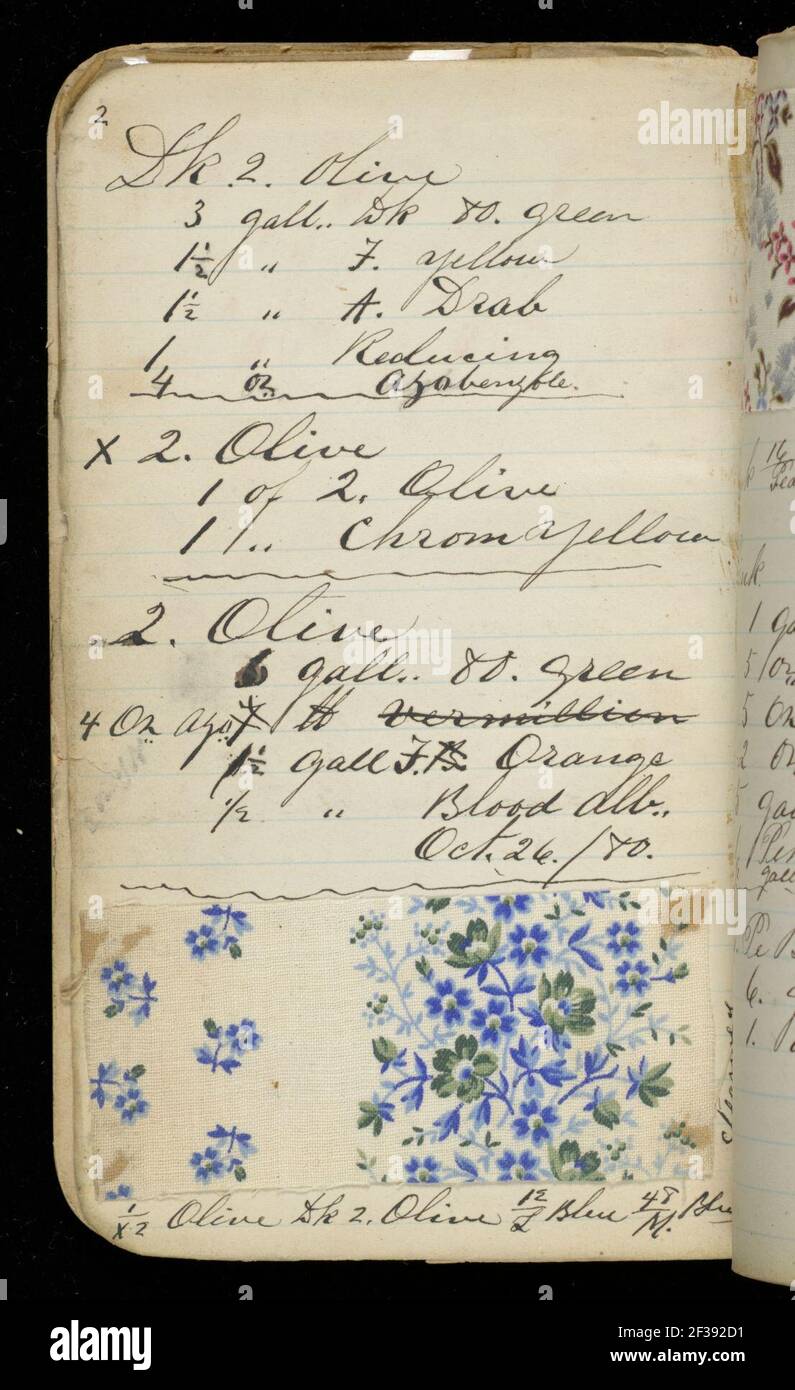 2
Dk. 2. Olive
3 gall.. Dk 80. green
1½ " F. yellow
1½ " A. Drab
1 " Reducing
4 oz Azobenzole.
X 2. Olive
1 of 2. Olive
1 " Chrom Yellow
2. Olive
6 gall.. 80. green
4 Oz Azo # vermillion
1½ gall F.B. Orange
1/2 " Blood Alb..
Oct. 26./80.
steamed
1/X2 Olive Dk 2. Olive 12/L Blue 48/M. Blue
16
1 ga
5 oz
5 oz
2 oz
gall
6.
1.
alamy
Image ID: 2F392D1
www.alamy.com